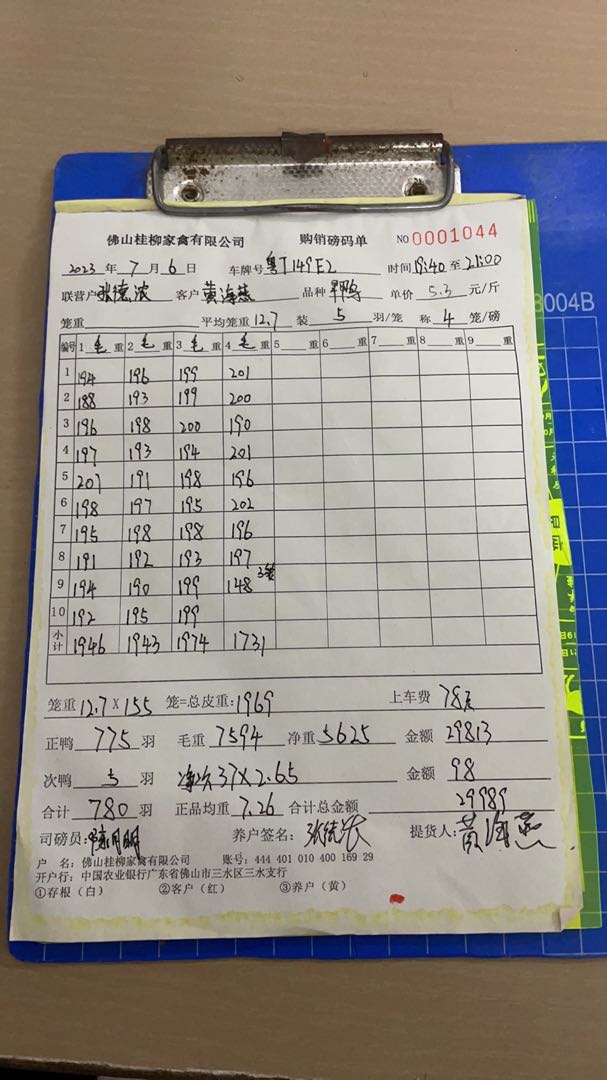 佛山桂柳家禽有限公司 购销磅码单 NO 0001044
2023 年 7 月 6 日 车牌号 粤T149E2 时间 19:40 至 21:00
联营户 张德浓 客户 黄海燕 品种 旱鸭 单价 5.3 元/斤
笼重 平均笼重 12.7 装 5 羽/笼 称 4 笼/磅
编号 1 毛 重 2 毛 重 3 毛 重 4 毛 重 5 重 6 重 7 重 8 重 9 重
1 194 196 199 201
2 188 193 199 200
3 196 198 200 190
4 197 193 194 201
5 201 191 198 196
6 198 197 195 202
7 195 198 198 196
8 191 192 193 197
9 194 190 199 148 3笼
10 192 195 199
小计 1946 1943 1974 1731
笼重 12.7 X 155 笼=总皮重: 1969 上车费 78元
正鸭 775 羽 毛重 7594 净重 5625 金额 29813
次鸭 5 羽 净次 37X2.65 金额 98
合计 780 羽 正品均重 7.26 合计总金额 29989
司磅员: 养户签名: 张德浓 提货人: 黄海燕
户 名: 佛山桂柳家禽有限公司 账号: 444 401 010 400 169 29
开户行: 中国农业银行广东省佛山市三水区三水支行
①存根（白） ②客户（红） ③养户（黄）
3004B